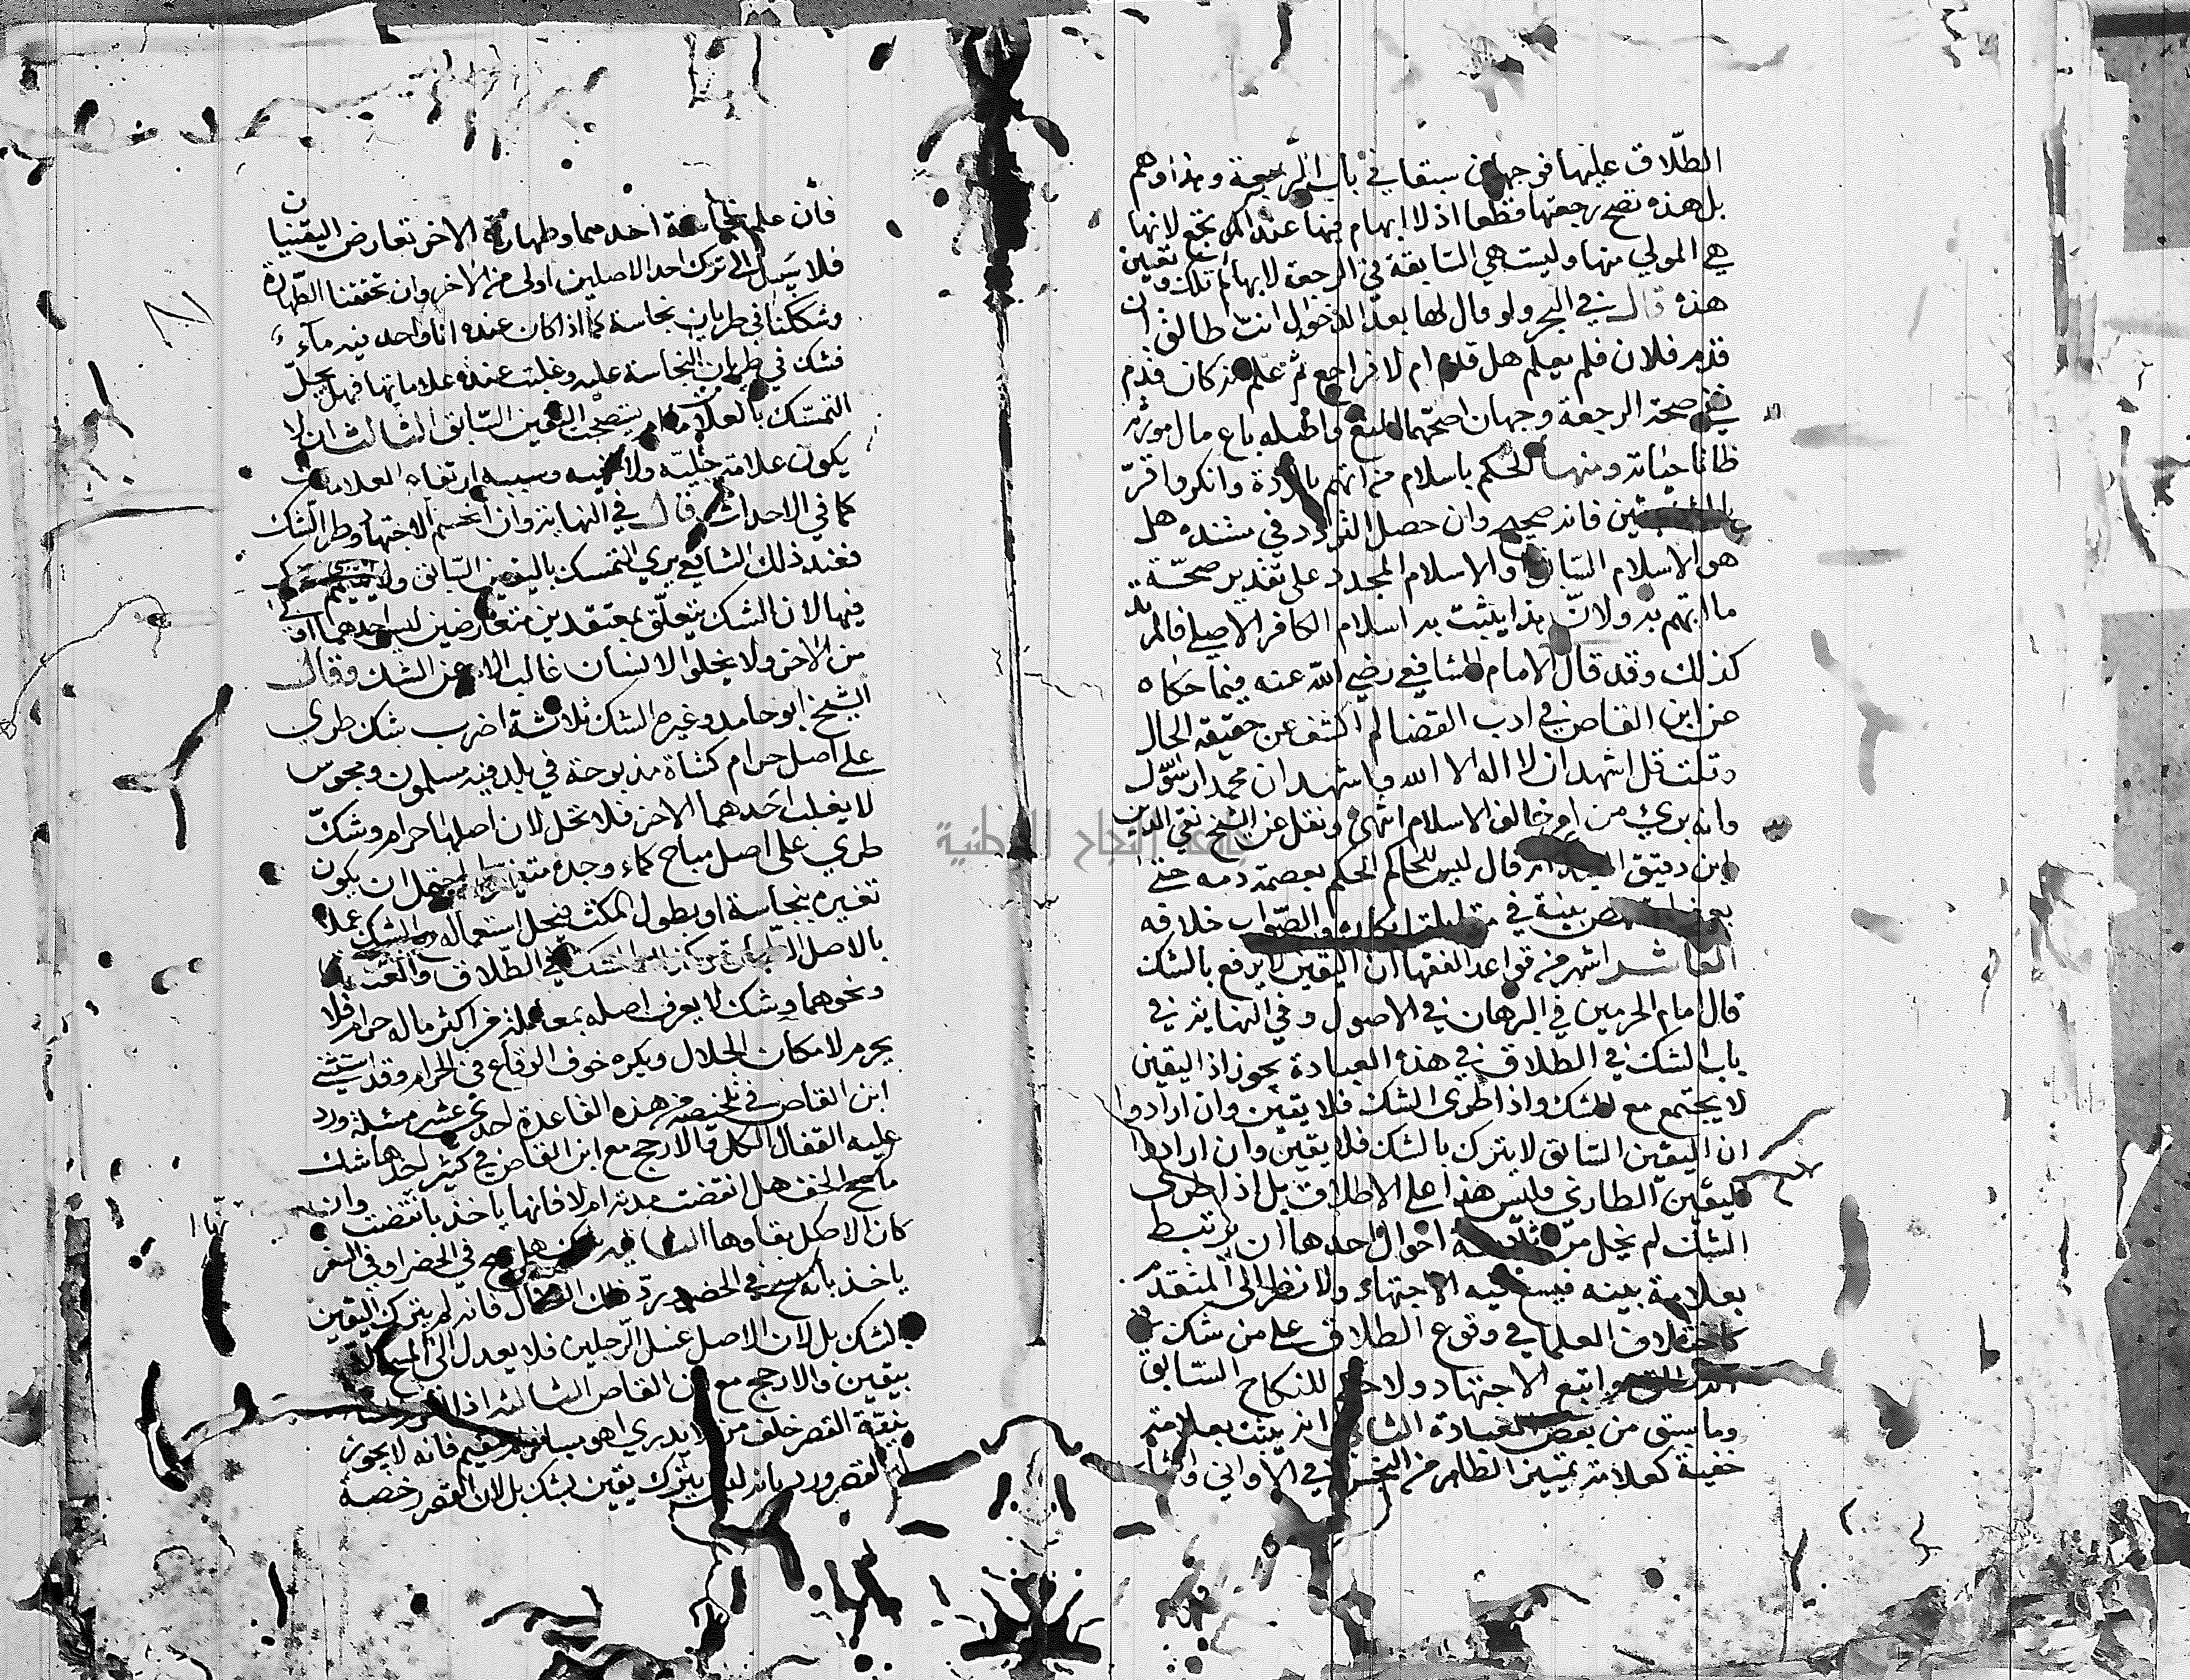 الطلاق عليها فوجهان سبقا في باب الرجعة وهذا وهم
بل هذه تصح رجعتها قطعا اذ لا ابهام فيها عند المراجع لانها
هي المولي منها وليست هي السابقة في الرجعة لابهام تلك وتعيين
هذه قال في البحر ولو قال لها بعد الدخول انت طالق ان
قدم فلان فلم يعلم هل قدم ام لا فراجع ثم علم انه كان قدم
ففي صحة الرجعة وجهان اصحهما المنع واصله باع مال مورثه
ظانا حياته ومنها الحكم باسلام من اتهم بالردة وانكر واقر
بالشهادتين فانه صحيح وان حصل التردد في مستنده هل
هو الاسلام السابق او الاسلام المجدد على تقدير صحة
ما اتهم به ولان هذا يثبت به اسلام الكافر الاصلي فالمرتد
كذلك وقد قال الامام الشافعي رضي الله عنه فيما حكاه
عن ابن القاص في ادب القضا لم اكشف عن حقيقة الحال
وقلت قل اشهد ان لا اله الا الله واشهد ان محمدا رسول
وانه بريء من خالف الاسلام انتهى ونقل عن الشيخ تقي الدين
ابن دقيق انه قال ليس للحاكم الحكم بعصمة دمه حتى
بينة في والصواب خلافه
العاشر اشهر من قواعد الفقها ان اليقين لا يرفع بالشك
قال امام الحرمين في البرهان في الاصول وفي النهاية في
باب الشك في الطلاق في هذه العبادة تجوز اذ اليقين
لا يجتمع مع الشك واذا طرى الشك فلا يقين وان ارادوا
ان اليقين السابق لا يترك بالشك فلا يقين وان ارادوا
اليقين الطاري وليس هذا على الاطلاق بل اذا طرى
الشك لم يخل من ثلاثة احوال احدها ان يرتبط
بعلامة بينه فيسع فيه الاجتهاد ولا نظر الى المتقدم
كاختلاف العلما في وقوع الطلاق على من شك في
واتبع الاجتهاد ولا للنكاح السابق
وما سبق من بعض العبادة الثاني ان يثبت بعلامة
خفية كعلامة تمييز الطاهر من النجس في الاواني والثياب
فان علم نجاسة احدهما وطهارة الاخر تعارض اليقينان
فلا سبيل الى ترك احد الاصلين اولى من الاخر وان تحققنا الطهارة
وشككنا في طريان نجاسة كما اذا كان عنده انا واحد فيه ماء
فشك في طريان النجاسة عليه وغلبت عنده علاماتها فهل يحل
التمسك بالعلامة ام يستصحب اليقين السابق الثالث ان لا
يكون علامة جلية ولا خفية وسببه ارتفاع العلامات
كما في الاحداث قال في النهاية وان انحسم الاجتهاد وطرا الشك
فعند ذلك الشافعي يرى التمسك باليقين السابق ولا
فيها لان الشك يتعلق بمعتقدين متعارضين ليس احدهما اولى
من الاخر ولا يخلوا الانسان غالبا عن الشك وقال
الشيخ ابو حامد وغيره الشك ثلاثة اضرب شك طري
على اصل حرام كشاة مذبوحة في بلد فيه مسلمون ومجوس
لا يغلب احدهما الاخر فلا تحل لان اصلها حرام وشك
طري على اصل مباح كماء وجده متغيرا يحتمل ان يكون
تغيره بنجاسة او بطول المكث فيحل استعماله مع الشك عملا
بالاصل الشك في الطلاق والعتق
ونحوهما وشك لا يعرف اصله بمعاملة من اكثر ماله حرام فلا
يحرم لامكان الحلال ويكره خوف الوقوع في الحرام وقد استثنى
ابن القاص في تلخيصه من هذه القاعدة احدى عشر مسئلة ورد
عليه القفال الكل والارجح مع ابن القاص في كثير احدها شك
ماسح الخف هل انقضت مدته ام لا فانها ياخذ بانقضت وان
كان الاصل بقاوها الثانيه شك هل مسح في الحضر او في السفر
ياخذ بانه مسح في الحضر ورد ذلك القفال فانه لم يترك اليقين
بالشك بل لان الاصل غسل الرجلين فلا يعدل الى المسح الا
بيقين والارجح مع ابن القاص الثالثة اذا
بنية القصر خلف من لا يدري اهو مسافر او مقيم فانه لا يجوز
له القصر ورد بانه ليس بترك يقين بشك بل لان القصر رخصة